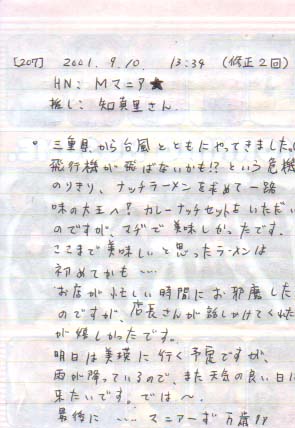 [207] 2001.9.10. 13:34 (修正2回)
HN: Mマニア★
推し: 知真里さん
。三重県から台風とともにやってきました。
飛行機が飛ばないかも!?という危機
のりきり、ナッチラーメンを求めて一路
味の大王へ!カレーナッチセットをいただい
のですが、マヂで美味しかったです。
ここまで美味しいと思ったラーメンは
初めてかも……
お店が忙しい時間にお邪魔した
のですが、店長さんが話しかけてくれた
が嬉しかったです。
明日は美瑛に行く予定ですが、
雨が降っているので、また天気の良い日に
来たいです。では〜.
最後に……マニアーず万歳!!